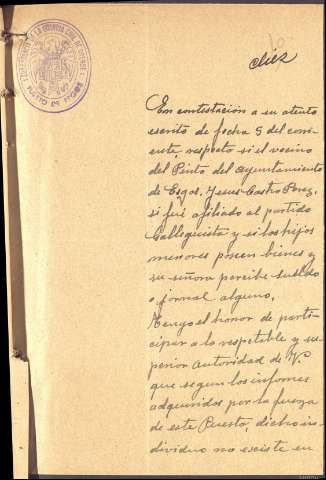 diez
PUESTO DE ESGOS
En contestación a su atento
escrito de fecha 5 del corri
ente, respecto si el vecino
del Pinto del Ayuntamiento
de Esgos, Jesus Castro Perez,
si fué afiliado al partido
Galleguista y si los hijos
menores poseen bienes y
su señora percibe sueldo
o jornal alguno,
Tengo el honor de parti-
cipar a la respetable y su-
perior autoridad de V.
que segun los informes
adquiridos por la fuerza
de este Puesto, dicho in-
dividuo no existe en